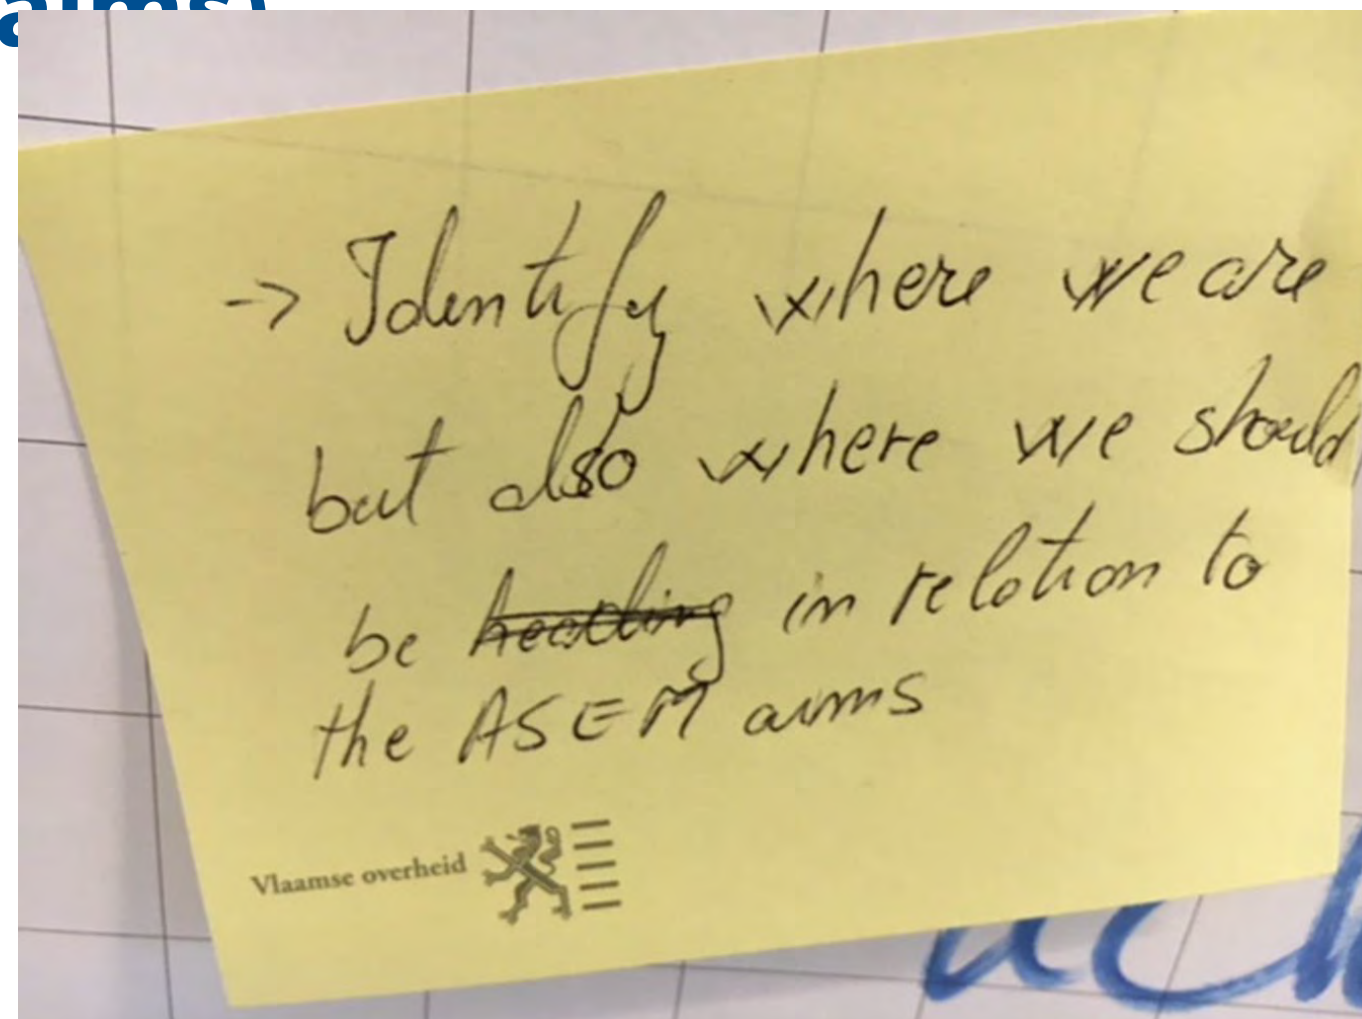 -> Identify where we are
but also where we should
be heading in relation to
the ASEM aims
Vlaamse overheid